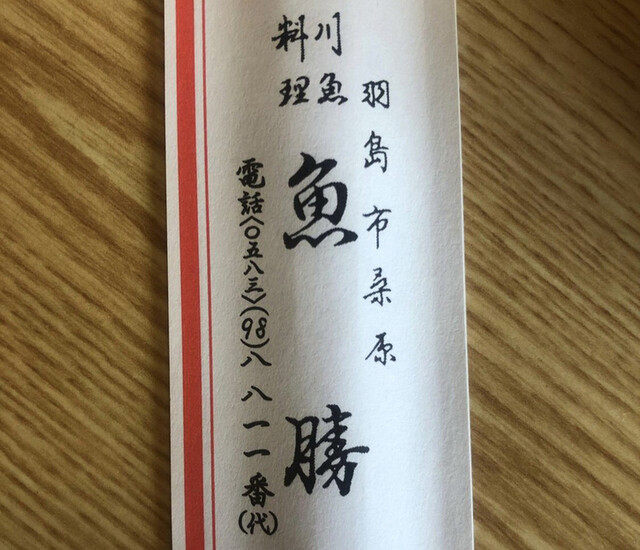 羽島市桑原
川魚
料理
魚勝
電話(〇五八三)(98)八八一一番(代)